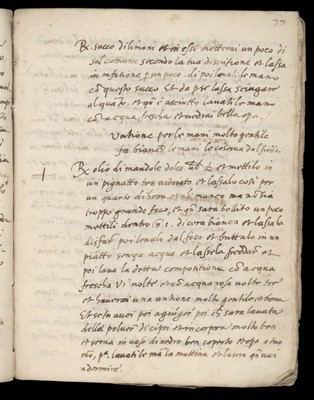 77
℞ succo di limoni et in esso metterai un poco di
sal comune secondo la tua discretione et lassa
in infusione p un poco di poi lavati le mano
cō questo succo Et da per lassa sciugare
alquāto, et qñ è asciutto lavati le mano
cō acqua frescha et vedrai bella opa.
Untione per le mani molto gentile
fa bianco le mani le conserva dal freddo
℞ olio di mandole dolce et mettilo in
un pignatto ben vidriato, et lassalo cosi per
un quarto di hora et al manco ma nō sia
troppo grande foco, et qñ sara bollito un poco
mettili dentro di cera bianca et lassala
disfar poi levalo dal foco et buttalo in un
piatto senza acqua et lassela freddare et
poi lava la detta compositione cō acqua
frescha VI volte et cō acqua rosa volte tre
et haverai una untione molto gentile et bona
Et se tu vuoi poi agiūger poi ch sara lavata
della polver di cipri et incorpora molto ben
et serva in vaso di vedro ben coperto et opa a tuo
mō, p.ª lavati le mā la mattina et la sera qñ vai
a dormire.